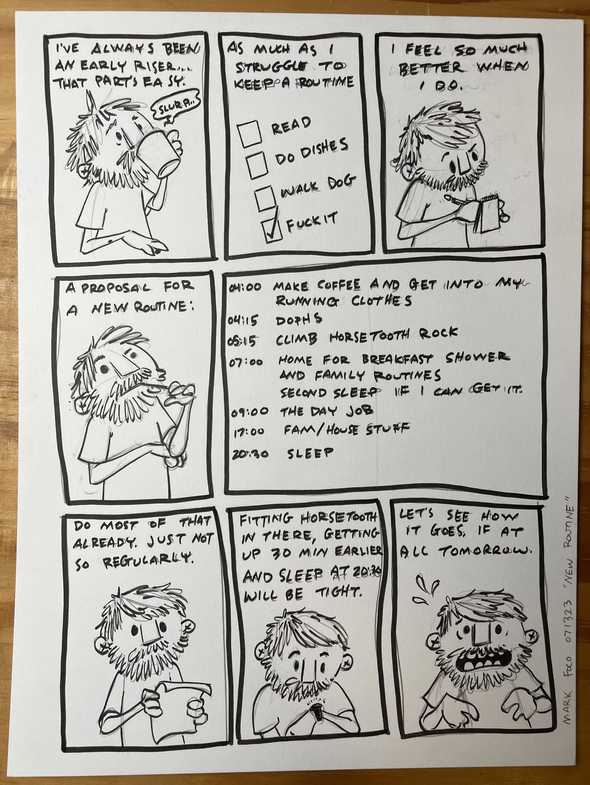 I'VE ALWAYS BEEN
AN EARLY RISER...
THAT PART'S EASY.
SLURP..
AS MUCH AS I
STRUGGLE TO
KEEP A ROUTINE
READ
DO DISHES
WALK DOG
FUCK IT
I FEEL SO MUCH
BETTER WHEN
I DO.
A PROPOSAL FOR
A NEW ROUTINE:
04:00 MAKE COFFEE AND GET INTO MY
RUNNING CLOTHES
04:15 DOPHS
05:15 CLIMB HORSETOOTH ROCK
07:00 HOME FOR BREAKFAST SHOWER
AND FAMILY ROUTINES
SECOND SLEEP IF I CAN GET IT.
09:00 THE DAY JOB
17:00 FAM/HOUSE STUFF
20:30 SLEEP
DO MOST OF THAT
ALREADY. JUST NOT
SO REGULARLY.
FITTING HORSETOOTH
IN THERE, GETTING
UP 30 MIN EARLIER
AND SLEEP AT 20:30
WILL BE TIGHT.
LET'S SEE HOW
IT GOES, IF AT
ALL TOMORROW.
MARK FOCO 071323 "NEW ROUTINE"